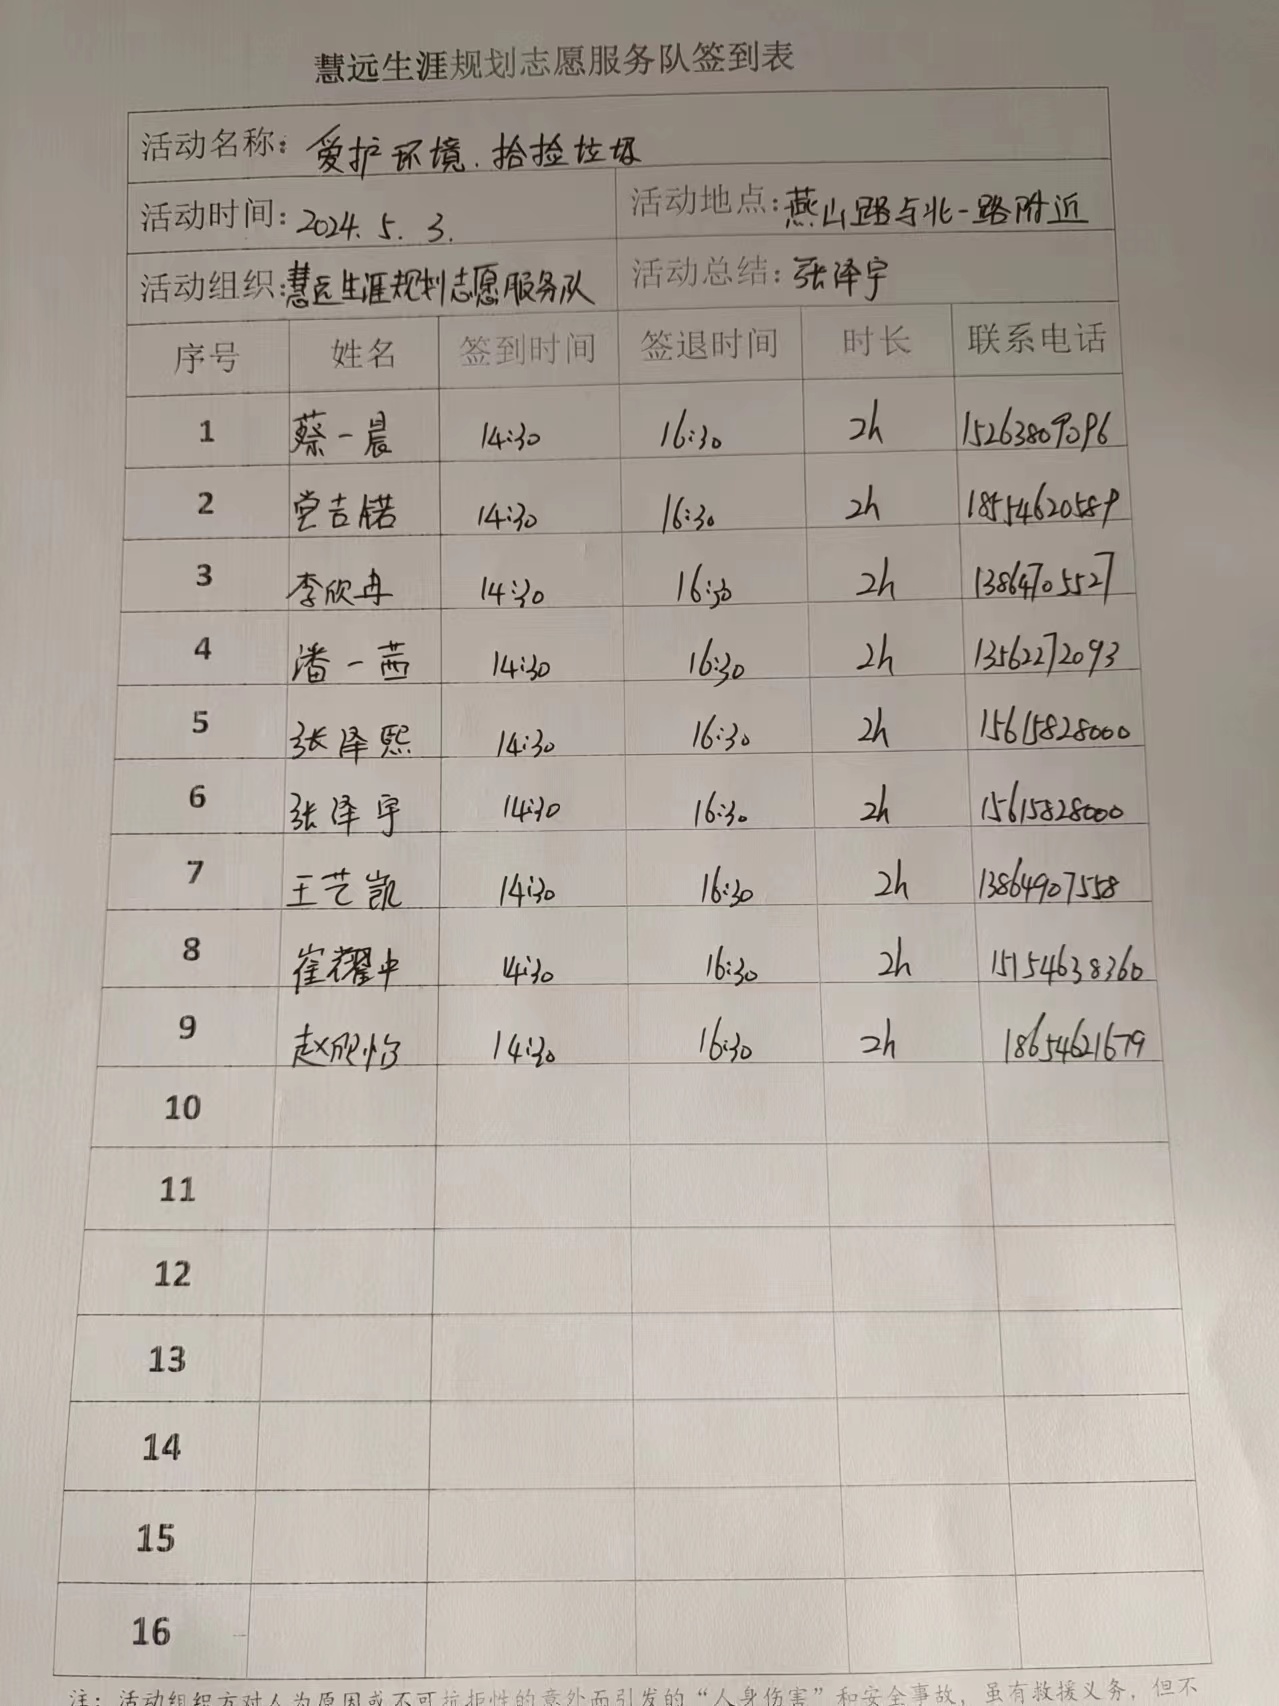 慧远生涯规划志愿服务队签到表
活动名称: 爱护环境.拾捡垃圾
活动时间: 2024.5.3. 活动地点: 燕山路与北一路附近
活动组织: 慧远生涯规划志愿服务队 活动总结: 张泽宇
序号 姓名 签到时间 签退时间 时长 联系电话
1 蔡一晨 14:30 16:30 2h 15263809096
2 党吉锘 14:30 16:30 2h 18554620589
3 李欣冉 14:30 16:30 2h 13864705527
4 潘一茜 14:30 16:30 2h 13562272093
5 张泽熙 14:30 16:30 2h 15615828000
6 张泽宇 14:30 16:30 2h 15615828000
7 王艺凯 14:30 16:30 2h 13864907558
8 崔耀中 14:30 16:30 2h 15154638360
9 赵欣怡 14:30 16:30 2h 18654621679
10
11
12
13
14
15
16
注: 活动组织方对人为原因或不可抗拒性的意外而引发的“人身伤害”和安全事故, 虽有救援义务, 但不